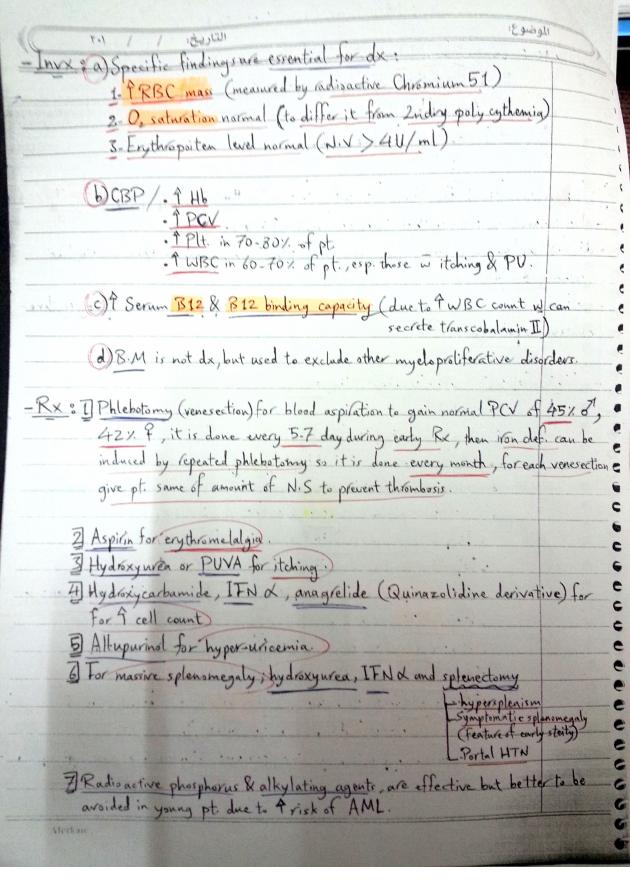 الموضوع:
التاريخ: / / ٢٠١
- Invx : a) Specific findings are essential for dx :
1- ↑RBC mass (measured by radioactive Chromium 51)
2- O₂ saturation normal (to differ it from 2ndry polycythemia)
3- Erythropoiten level normal (N.V > 4U/ml)
b) CBP / . ↑ Hb
. ↑ PCV
. ↑ Plt. in 70-80% of pt.
. ↑ WBC in 60-70% of pt., esp. those w̄ itching & PU.
c) ↑ Serum B12 & B12 binding capacity (due to ↑WBC count w can
secrete transcobalamin II)
d) B.M is not dx, but used to exclude other myeloproliferative disorders.
- Rx : 1] Phlebotomy (venesection) for blood aspiration to gain normal PCV of 45% ♂,
42% ♀, it is done every 5-7 day during early Rx, then iron def. can be
induced by repeated phlebotomy so it is done every month, for each venesection
give pt. same of amount of N.S to prevent thrombosis.
2] Aspirin for erythromelalgia.
3] Hydroxyurea or PUVA for itching.
4] Hydroxycarbamide, IFN α, anagrelide (Quinazolidine derivative) for
for ↑ cell count
5] Allupurinol for hyper-uricemia.
6] For massive splenomegaly ; hydroxyurea, IFN α and splenectomy
hypersplenism
Symptomatic splenomegaly
(feature of early)
Portal HTN
7] Radioactive phosphorus & alkylating agents, are effective but better to be
avoided in young pt. due to ↑ risk of AML.